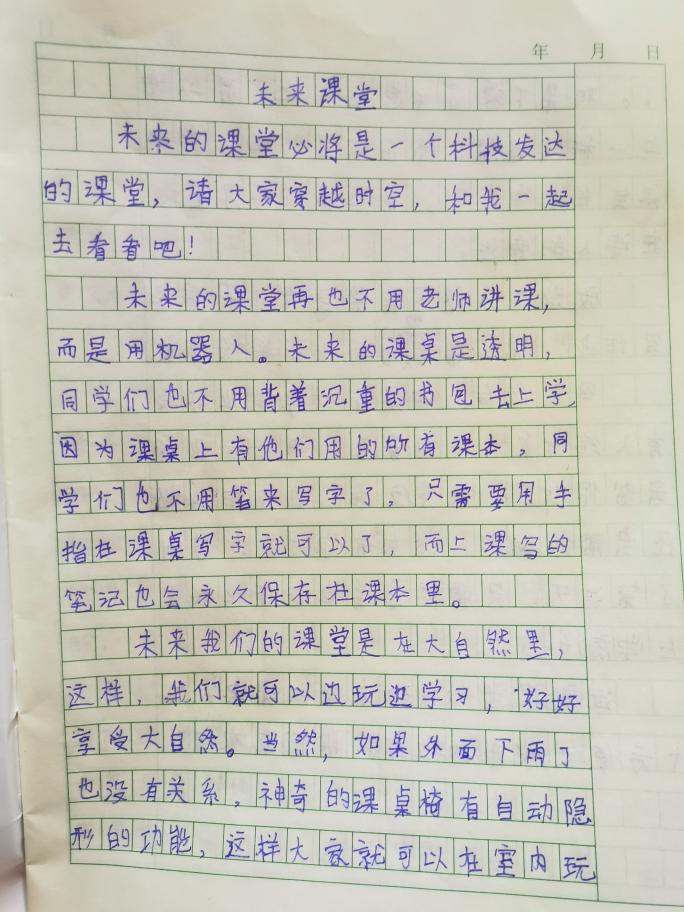 年 月 日
未来课堂
未来的课堂必将是一个科技发达
的课堂，请大家穿越时空，和我一起
去看看吧！
未来的课堂再也不用老师讲课，
而是用机器人。未来的课桌是透明，
同学们也不用背着沉重的书包去上学，
因为课桌上有他们用的所有课本，同
学们也不用笔来写字了，只需要用手
指在课桌写字就可以了，而上课写的
笔记也会永久保存在课本里。
未来我们的课堂是在大自然里，
这样，我们就可以边玩边学习，好好
享受大自然。当然，如果外面下雨了
也没有关系，神奇的课桌椅有自动隐
形的功能，这样大家就可以在室内玩